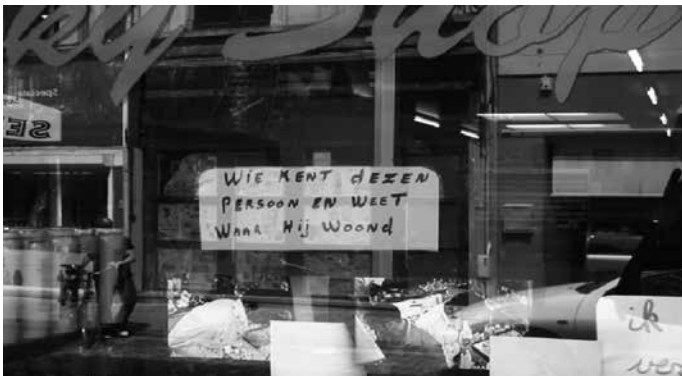 ky Shop
WIE KENT dEZEN
PERSOON EN WEET
WAAR Hij WOONd
ik
ver